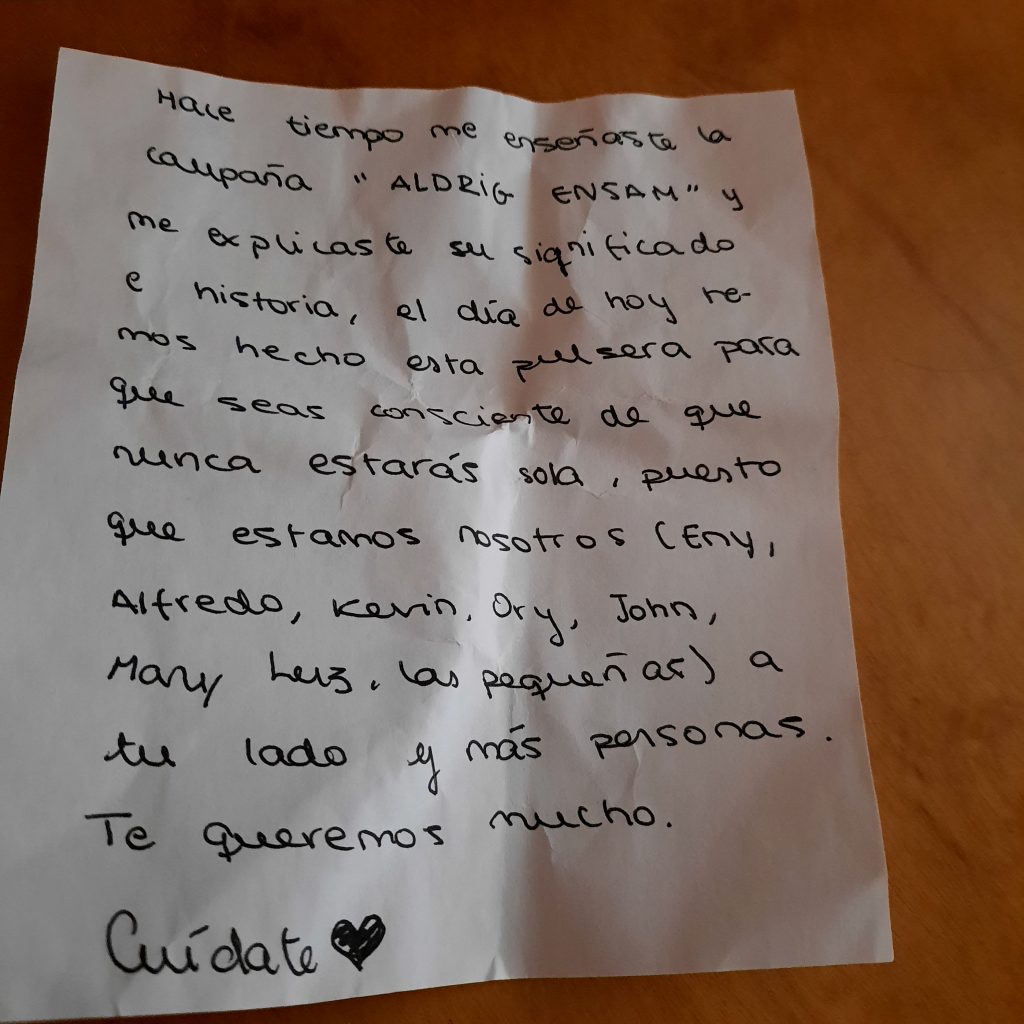 Hace tiempo me enseñaste la
campaña "ALDRIG ENSAM" y
me explicaste su significado
e historia, el día de hoy he-
mos hecho esta pulsera para
que seas consciente de que
nunca estarás sola, puesto
que estamos nosotros (Eny,
Alfredo, Kevin, Ory, John,
Mary Luz, las pequeñas) a
tu lado y más personas.
Te queremos mucho.
Cuídate ♥